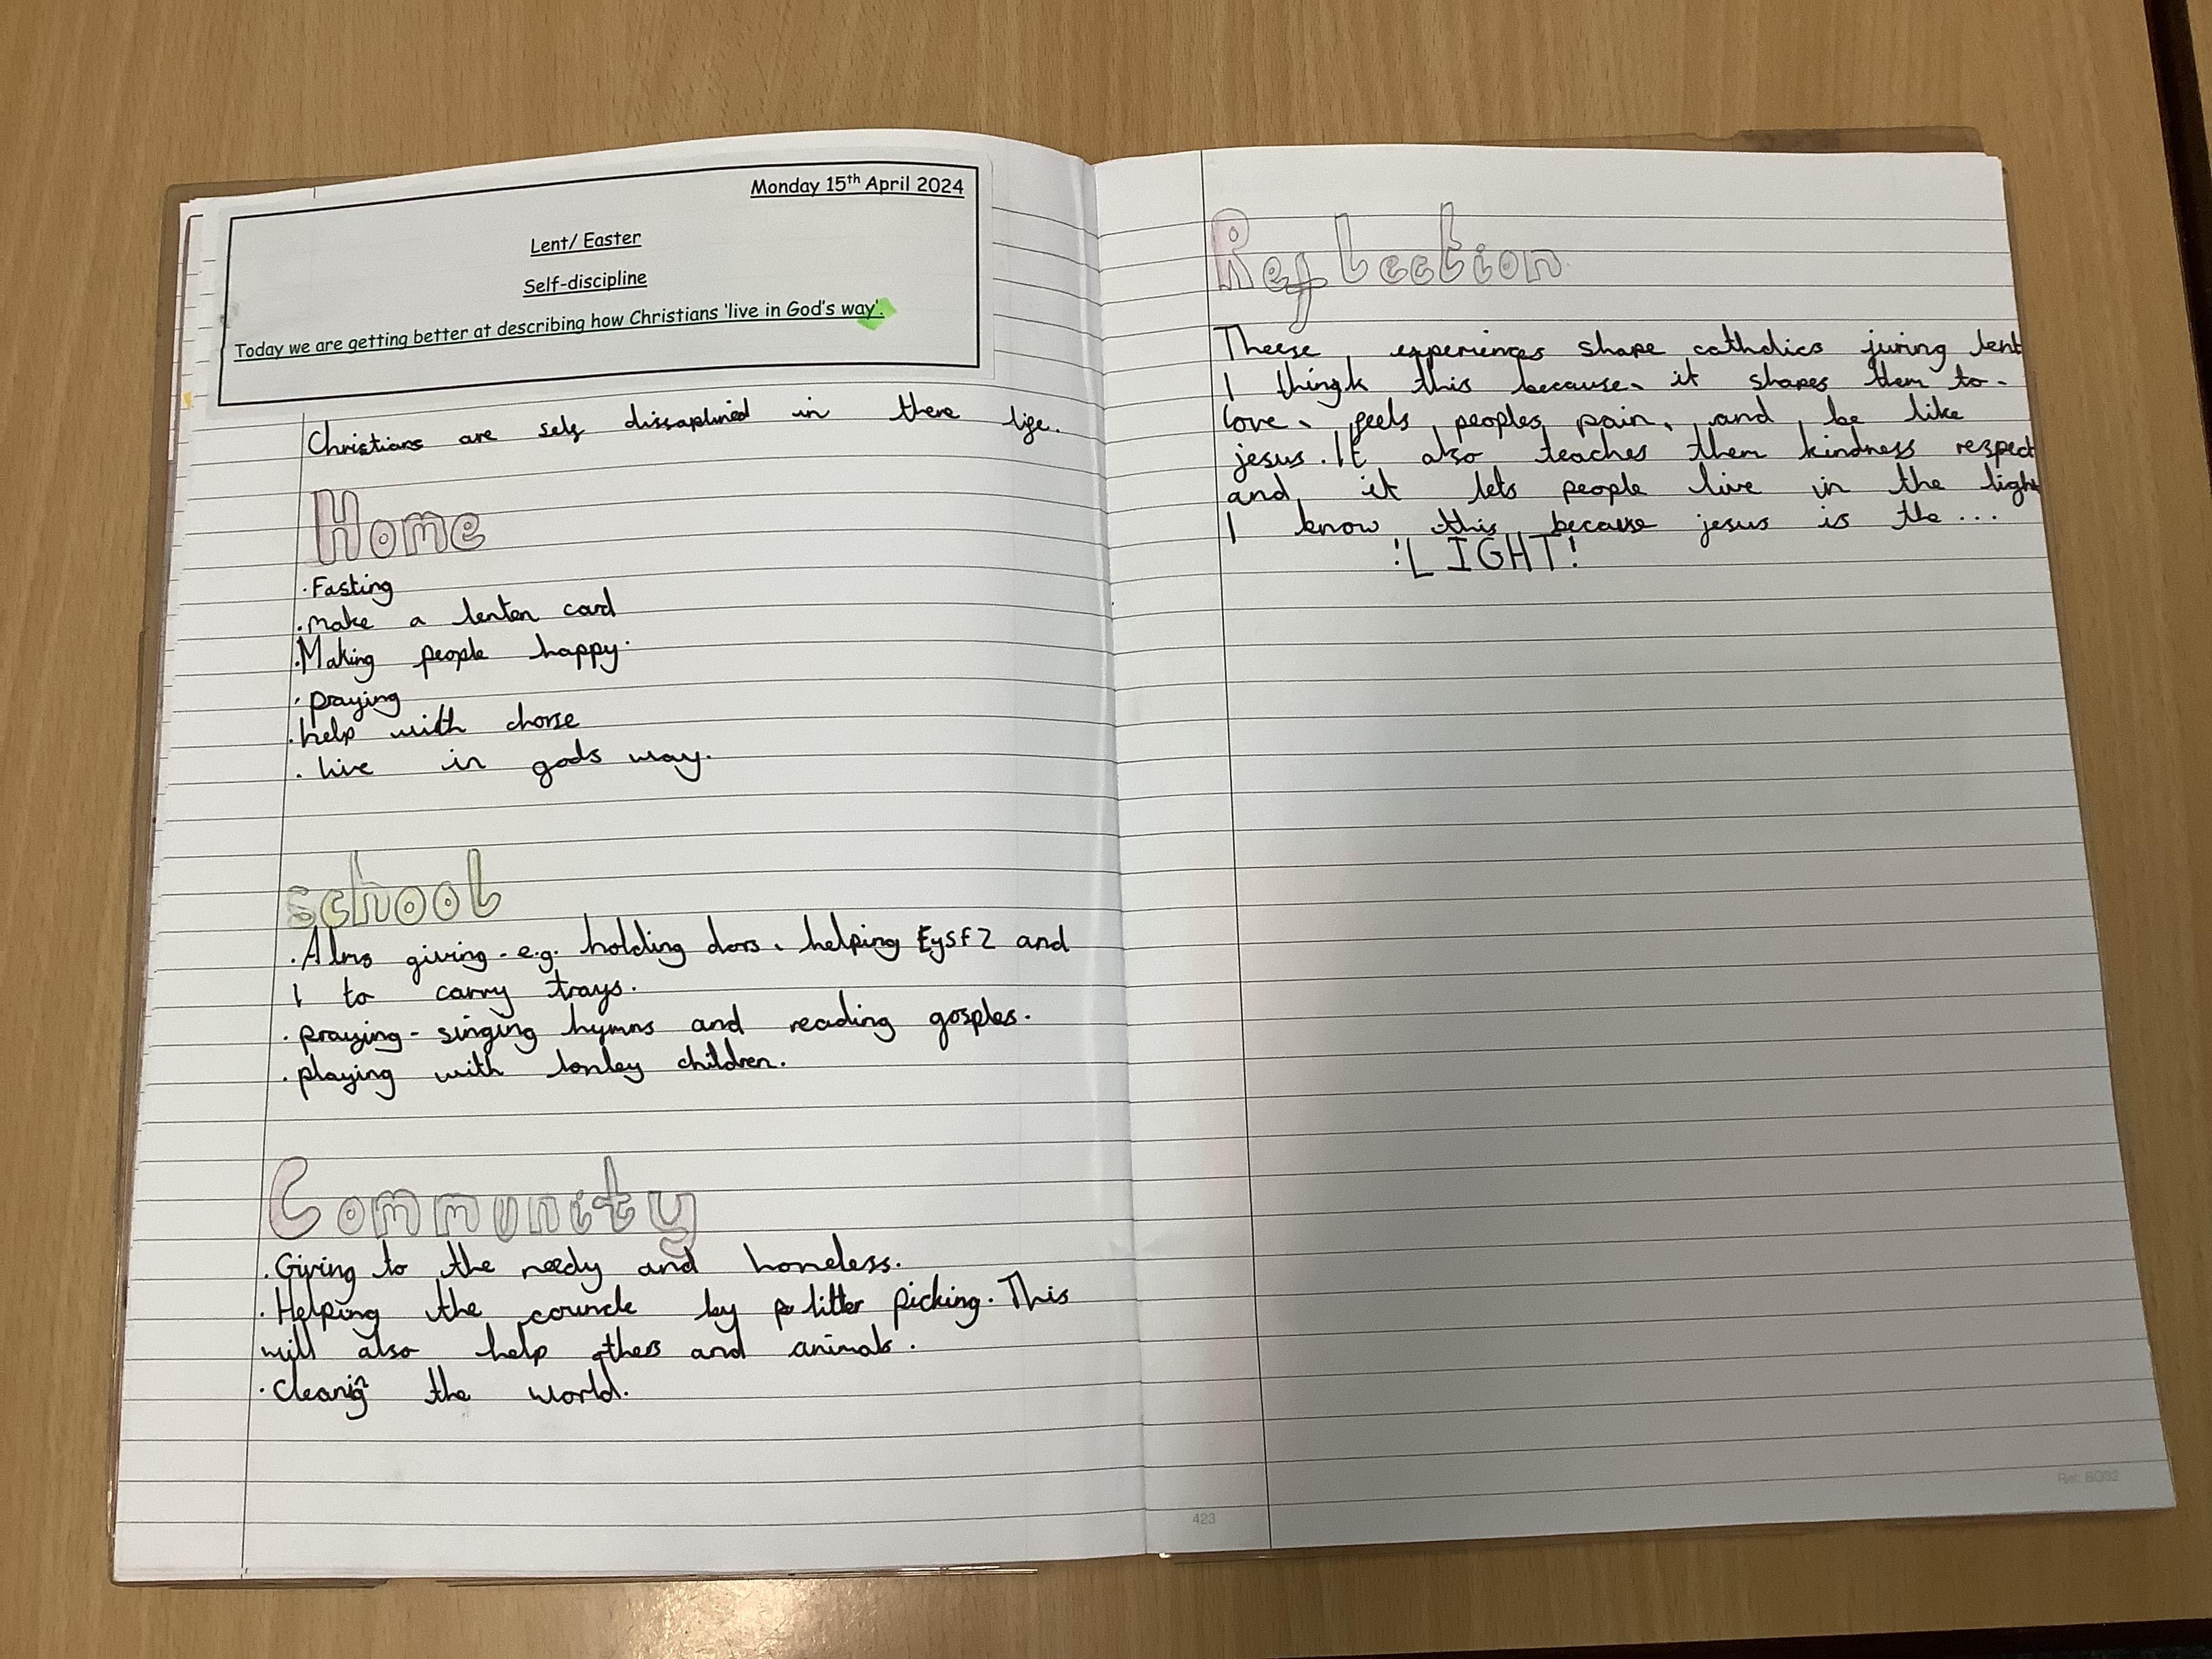 Monday 15th April 2024
Lent/ Easter
Self-discipline
Today we are getting better at describing how Christians 'live in God's way'.
Christians are self dissaplined in there life.
Home
· Fasting
· make a lenten card
· Making people happy.
· praying
· help with chorse
· live in gods way.
school
· Alms giving - e.g. holding dors, helping Eysf 2 and
1 to carry trays.
· praying - singing hymns and reading gosples.
· playing with lonley children.
Community
· Giving to the needy and homeless.
· Helping the councle by litter picking. This
will also help others and animals.
· Cleanig the world.
Reflection
Theese experiences shape catholics juring lent
I thingk this because, it shapes them to
love, feels peoples pain, and be like
jesus. It also teaches them kindness respect
and it lets people live in the light
I know this because jesus is the ...
!LIGHT!
423
Ref: BO32